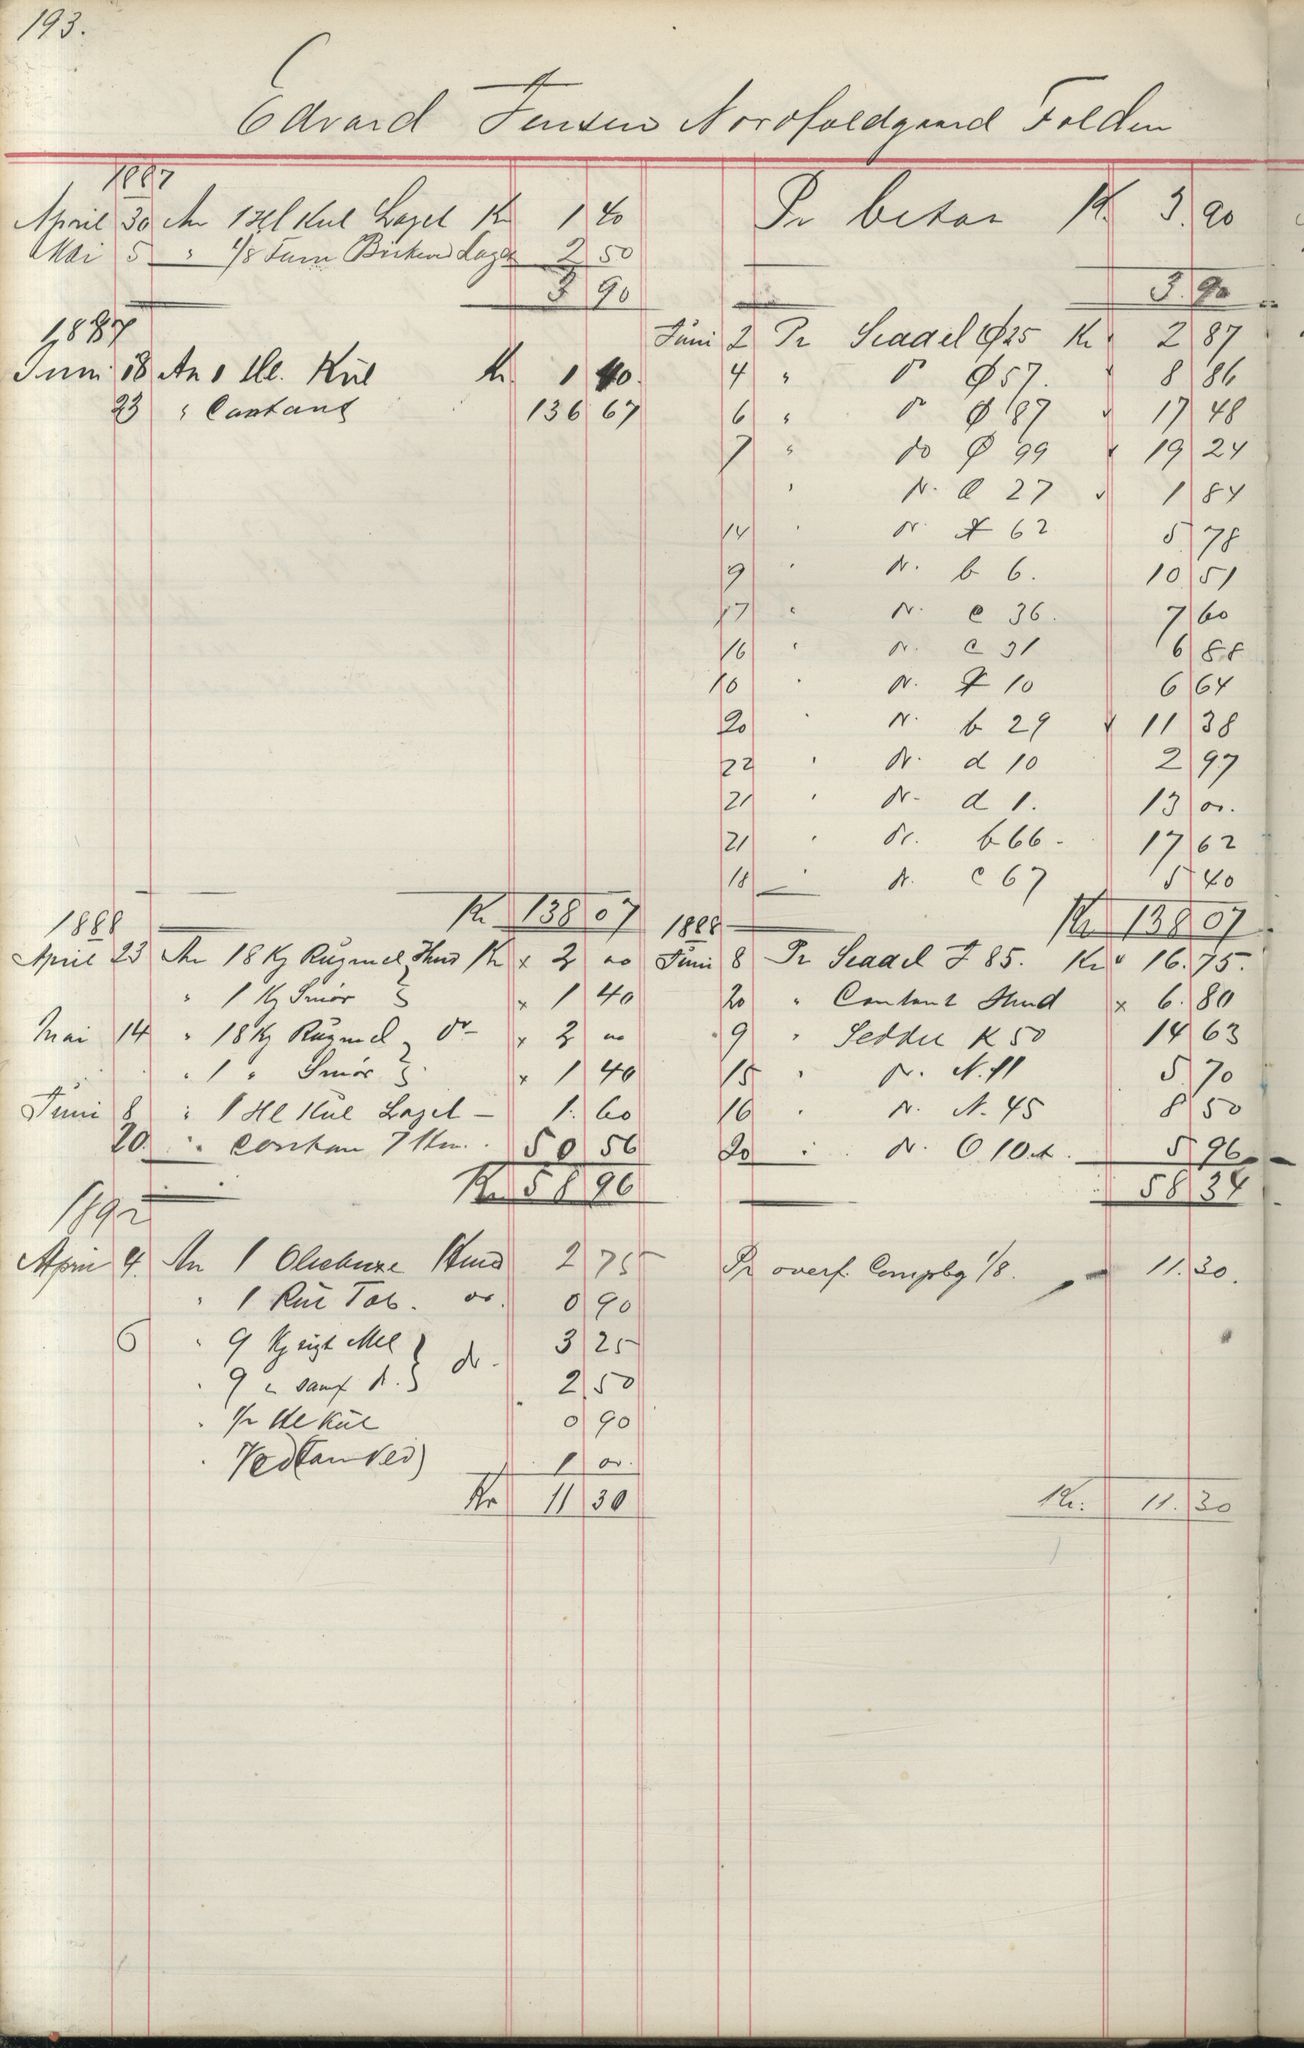 193.
Edvard Jensen Nordfoldgaard Folden
1887
April 30 An 1 Hl Kul Laget Kr 1 40
Mai 5 " 1/8 Favn Birkeved Laget 2 50
3 90
Pr betar K. 3.90
3.90
1887
Juni 18 An 1 Hl. Kül Kr. 1 40.
23 " Contant 136 67
Kr 138 07
Juni 2 Pr Seddel Ø 25 Kr 2 87
4 " do Ø 57. 8 86
6 " do Ø 87 17 48
7 " do Ø 99 19 24
" do. a 27 1 84
14 " do. 62 5 78
9 " do. b 6. 10 51
17 " do. c 36. 7 60
16 " do. c 31 6 88
10 " do. 10 6 64
20 " do. b 29 11 38
22 " do. d 10 2 97
21 " do. d 1. 13 oo.
21 " do. b 66 - 17 62
18 " do. c 67 5 40
Kr 138 07
1888
April 23 An 18 Kg Rügmel Kr x 2 oo
" 1 Kg Smør x 1 40
Mai 14 " 18 Kg Rügmel do x 2 oo
" 1 " Smør x 1 40
Juni 8 " 1 Hl Kül Laget - 1. 60
20. " Contant 50 56
Kr 58 96
1888
Juni 8 Pr Seddel J 85. Kr 16.75.
20 " Contant x 6.80
9 " Seddel K 50 14 63
15 " do. N. 11 5 70
16 " do. N. 45 8 50
20 " do. O 10 5 96
58 34
1892
April 4. An 1 Oliebuxe 2 75
" 1 Rul Tob. do. 0 90
6 " 9 Kg sigt Mel 3 25
" 9 " samf do. do. 2.50
" 1/2 Hl Kül 0 90
" Ved (Favnved) 1 oo.
Kr 11 30
Pr overf. 1/8. 11.30.
Kr. 11.30